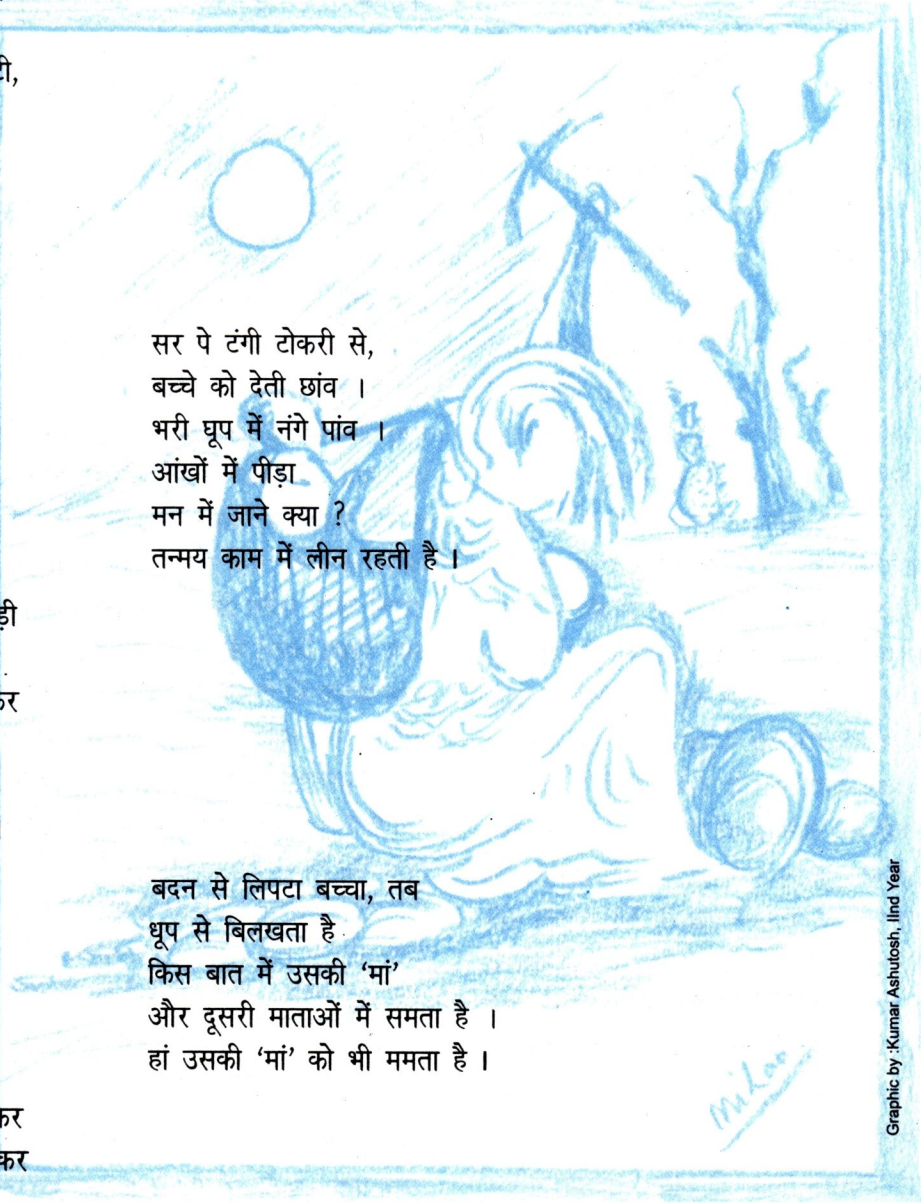 टी,
सर पे टंगी टोकरी से,
बच्चे को देती छांव ।
भरी घूप में नंगे पांव ।
आंखों में पीड़ा
मन में जाने क्या ?
तन्मय काम में लीन रहती है ।
ड़ी
कर
बदन से लिपटा बच्चा, तब
धूप से बिलखता है
किस बात में उसकी ‘मां’
और दूसरी माताओं में समता है ।
हां उसकी ‘मां’ को भी ममता है ।
कर
कर
Graphic by :Kumar Ashutosh, IInd Year